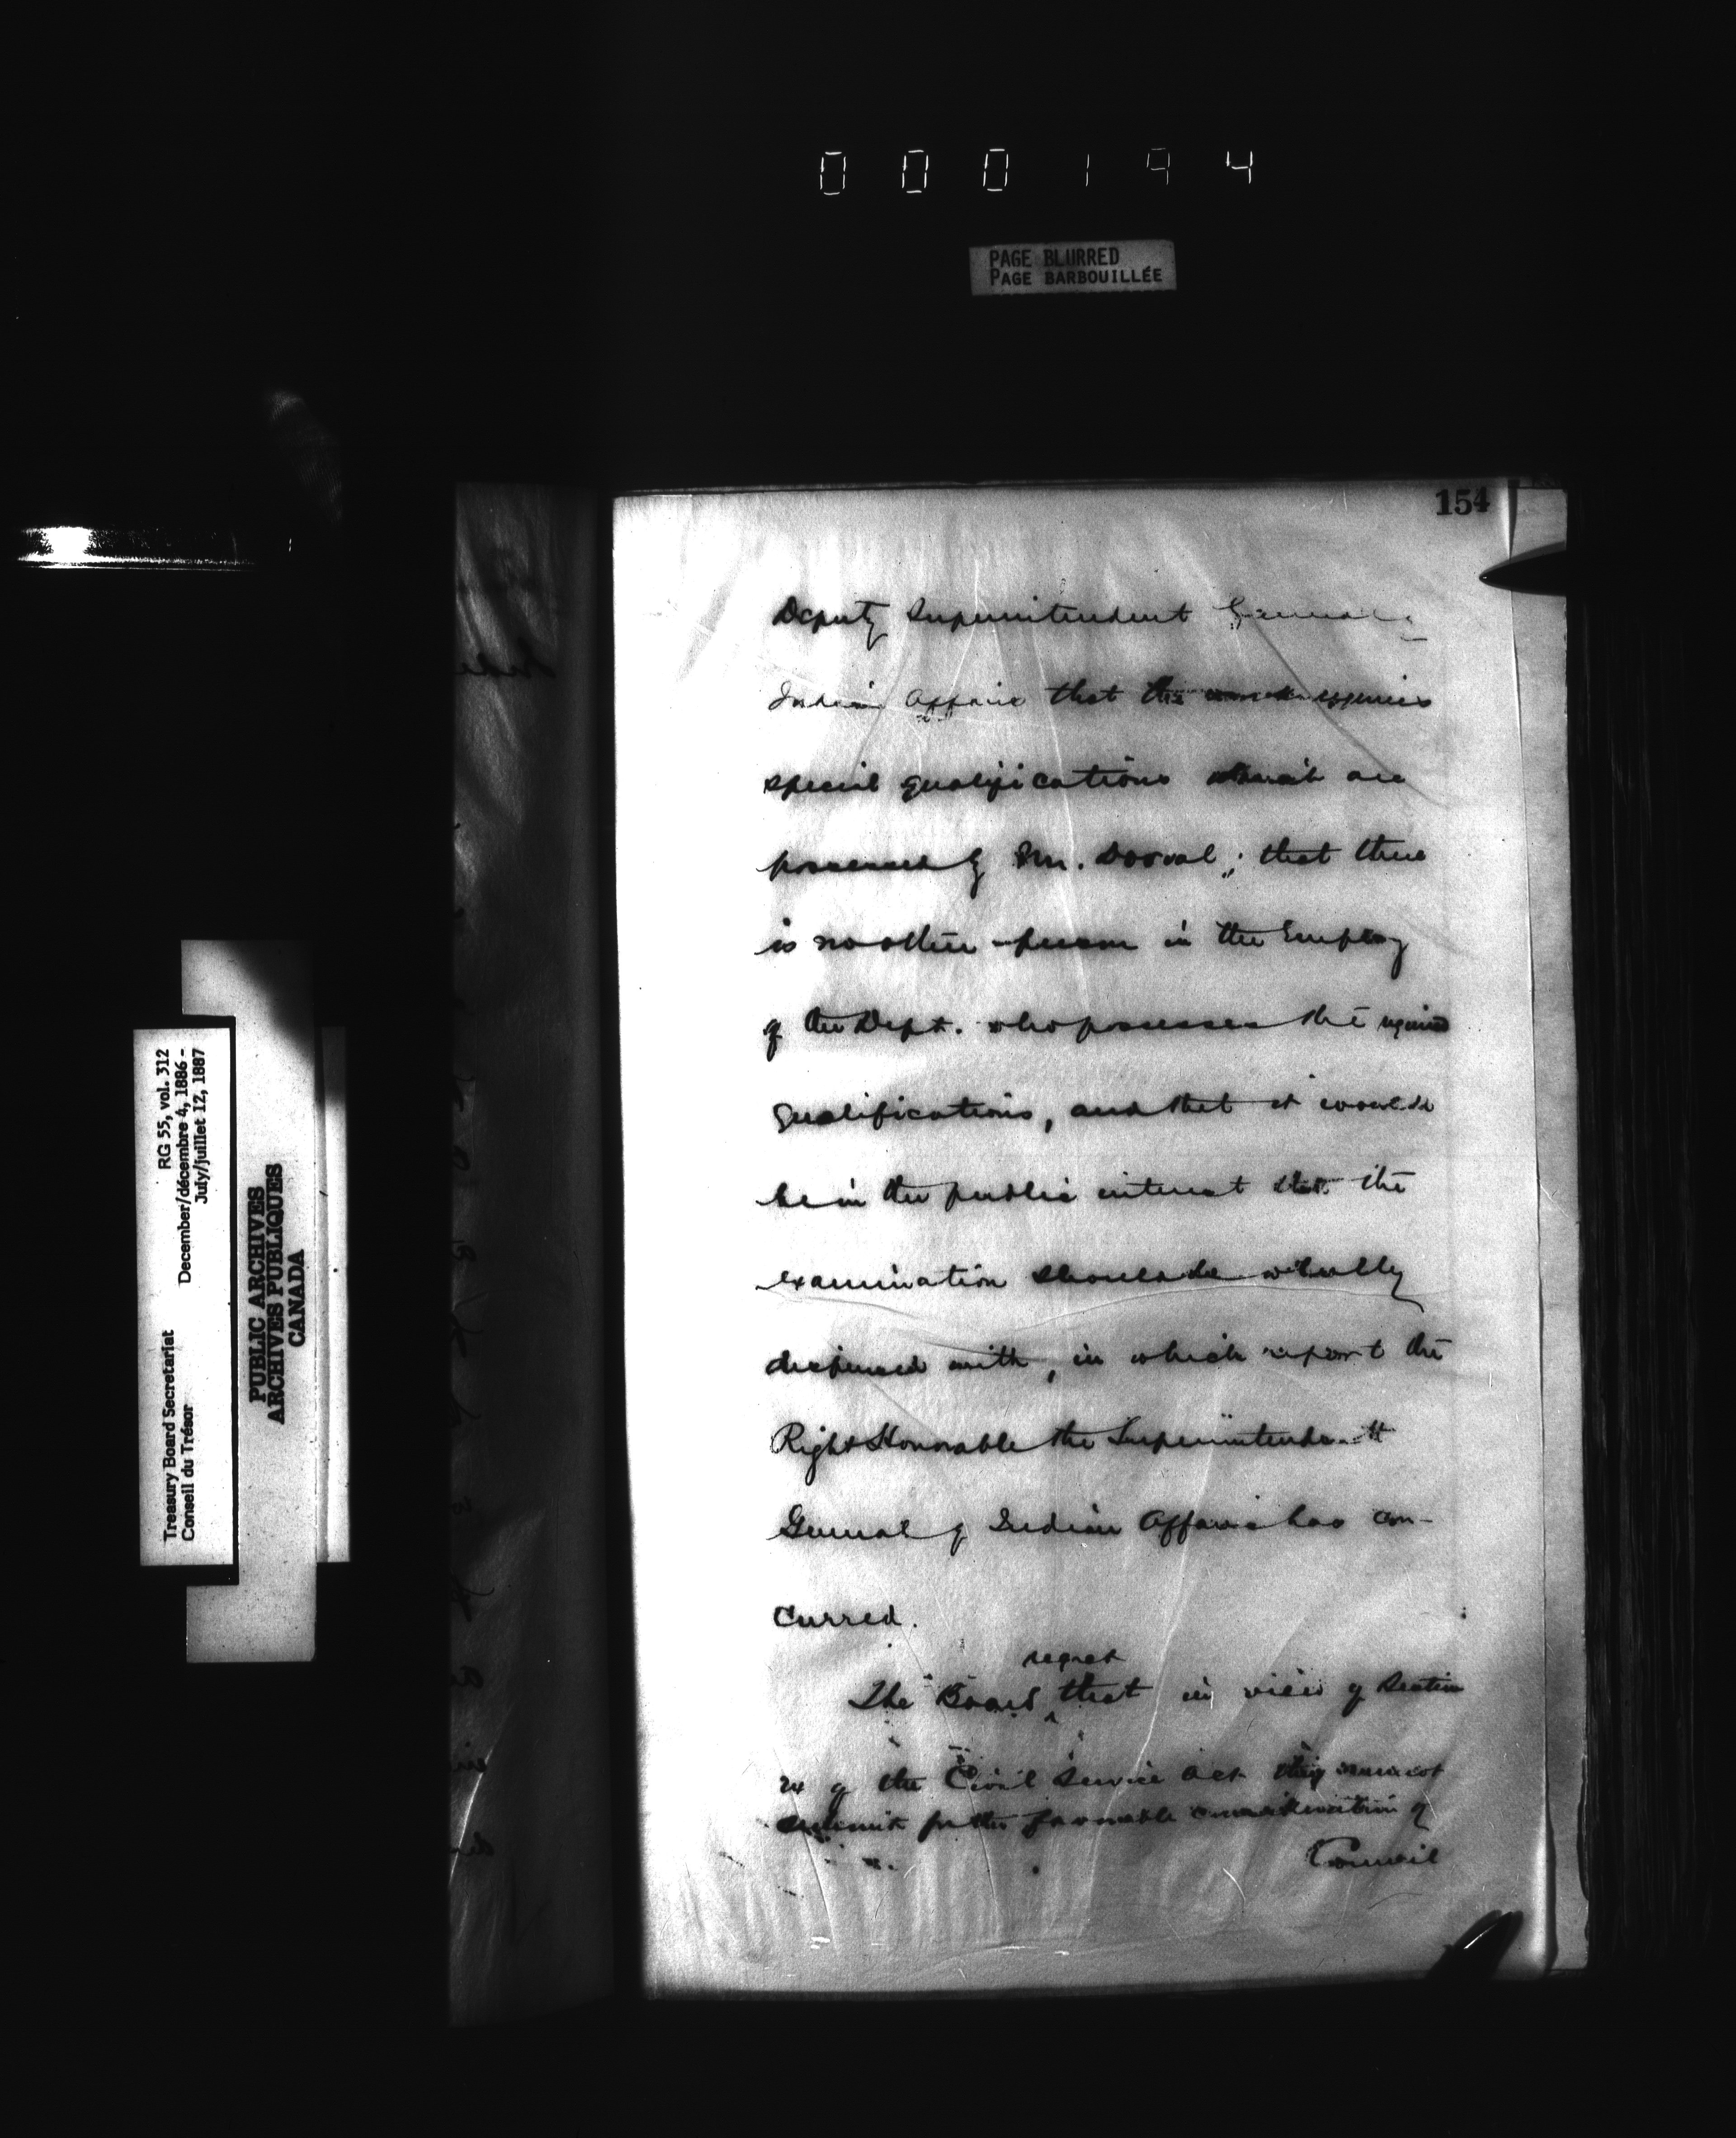 000194
PAGE BLURRED
PAGE BARBOUILLÉE
154
Deputy Superintendent General
Indian Affairs that the work requires
special qualifications which are
possessed by Mr. Dorval; that there
is no other person in the Employ
of the Dept. who possesses the required
qualifications, and that it would
be in the public interest that the
examination should be wholly
dispensed with, in which report the
Right Honorable the Superintendent
General of Indian Affairs has con-
curred.
regret
The Board that in view of Section
of the Civil Service Act they cannot
submit for the favorable consideration of
Council
Treasury Board Secretariat RG 55, vol. 312
Conseil du Trésor December/décembre 4, 1886 -
July/juillet 12, 1887
PUBLIC ARCHIVES
ARCHIVES PUBLIQUES
CANADA